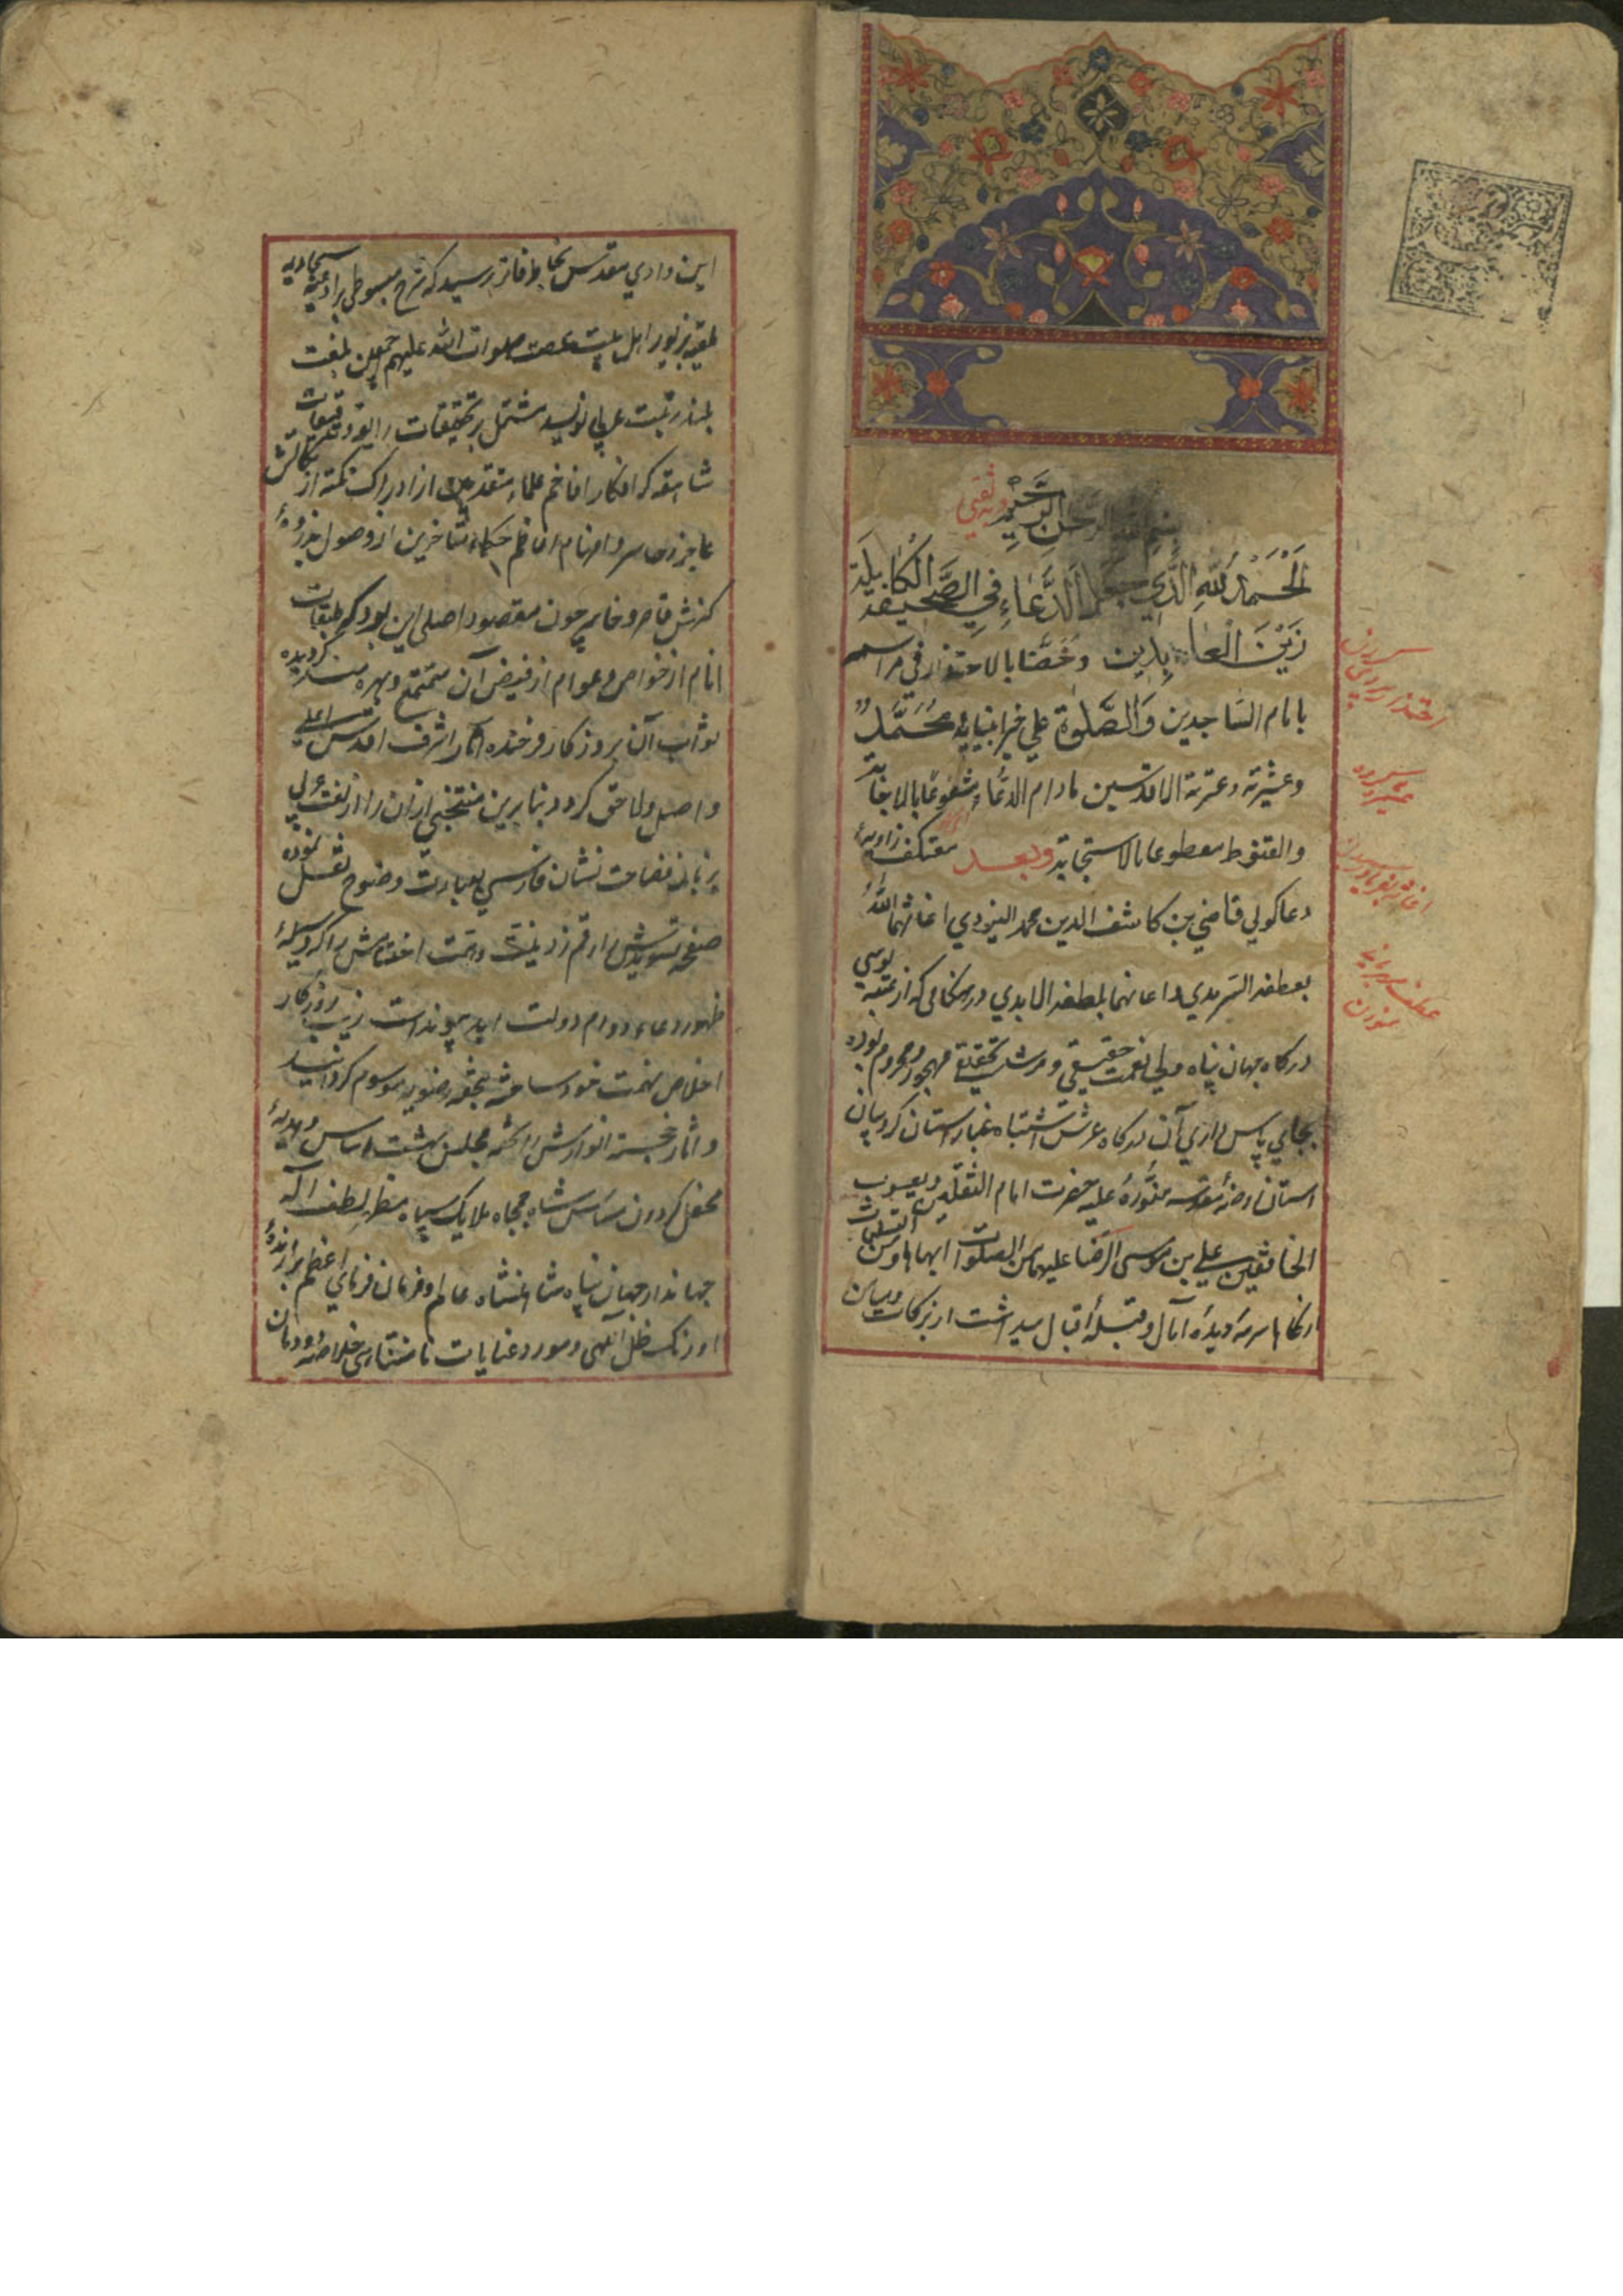 بسم الله الرحمن الرحيم وبه ثقتي
اَلْحَمْدُ لِلّهِ الَّذي جعل الدُّعَاءِ فِي الصَّحيفة الْكاملة
زَيْنَ الْعابِدين وخصّنا بالاحتذاء في مراسم
بامام السّاجدين وَالصَّلوة علي خير انبيائه مُحَمَّدٍ
وعشيرته وعترته الاقدسين مادام الدعاء مشفوعا بالاجابة
والقنوط معطوعا بالاستجابة وبعد معتكف زاوية
دعا كوئي قاضي بن كاشف الدين محمد اليزدي اغاثهما الله
بعطفه السرمدي واعانهما بلطفه الابدي در هنكامي كه از عتبه بوسي
دركاه جهان پناه ولي نعمت حقيقي ومرشد تحقيقي مهجور ومحروم بوده
بجاي پاس داري آن دركاه عرش اشتباه غبار آستان كروبيان
آستان روضهٔ مقدسه منورهٔ عليه حضرت امام الثقلين ويعسوب
الخافقين علي بن موسي الرضا عليهما من الصلوات ابهاها ومن التسليمات
ازكاها سرمهٔ ديدهٔ آمال وقبلهٔ اقبال ميداشت از بركات وميامن
اين وادي مقدس بخاطر فاتر رسيد كه شرح مبسوطي بر ادعيه سجاديه
بزبور اهل بيت عصمت صلوات الله عليهم اجمعين بلغت
بلند رتبت عربي نويسد مشتمل بر تحقيقات رايقه وتدقيقات
شامقه كه افكار افاخم علماء متقدمين از ادراك نكته از نكاتش
عاجز وحاسر وافهام اعاظم حكماء متاخرين از وصول بذروهٔ
كنهش قاصر وخاسر چون مقصود اصلي اين بود كه طبقات
انام از خواص وعوام از فيض آن متمتع وبهره مند كرديده
ثواب آن بروزكار فرخنده آثار اشرف اقدس اعلي
واصل ولاحق كردد بنابرين منتخبي از ان را از لغت عربي
بزبان فصاحت نشان فارسي بعبارت وضوح نقل نموده
صفحه تسويدش را رقم زد وتمت اختتامش را كه وسيلهٔ
ظهور دعاء دوام دولت ابد پيونداست زيب روزكار
اخلاص نهمت خود ساخته بتحفه رضويه موسوم كردانيد
واثار خجسته انوارش را تحفه مجلس بهشت اساس وهديهٔ
محفل كردون مماس شاه جمجاه ملايك سپاه مظهر لطف اله
جهاندار جهان پناه شاهنشاه عالم وفرمان فرماي اعظم برازندهٔ
اورنك ظل اللهي ومورد عنايات نامتناهي خلاصهٔ دودمان